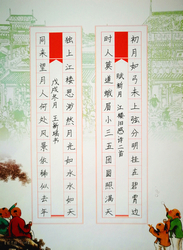 初月如弓未上弦分明挂在碧霄边
赋新月 江楼旧感 诗二首
时人莫道蛾眉小三五团圆照满天
独上江楼思渺然月光如水水如天
戊戌冬月 王新瑞书
同来望月人何处风景依稀似去年